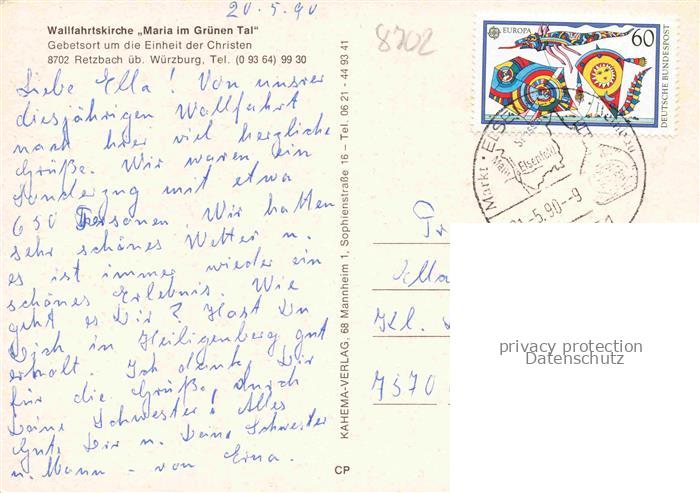 20.5.90
Wallfahrtskirche „Maria im Grünen Tal"
Gebetsort um die Einheit der Christen
8702 Retzbach üb. Würzburg, Tel. (0 93 64) 99 30
8702
Liebe Ella! Von unsrer
diesjährigen Wallfahrt
nach hier viel herzliche
Grüße. Wir waren ein
Sonderzug mit etwa
650 Personen. Wir hatten
sehr schönes Wetter u.
es ist immer wieder ein
schönes Erlebnis. Wie
geht es Dir? Hast Du
Dich in Heiligenberg gut
erholt. Ich dank Dir
für die Grüße durch
Deine Schwester! Alles
Gute Dir u. Deine Schwester
u. Mann - von Erna.
KAHEMA-VERLAG, 68 Mannheim 1, Sophienstraße 16 – Tel. 06 21 - 44 93 41
CP
EUROPA
60
DEUTSCHE BUNDESPOST
Markt
Main
Elsenfeld
-5.90--9
Ella
Kl.
7570
privacy protection
Datenschutz